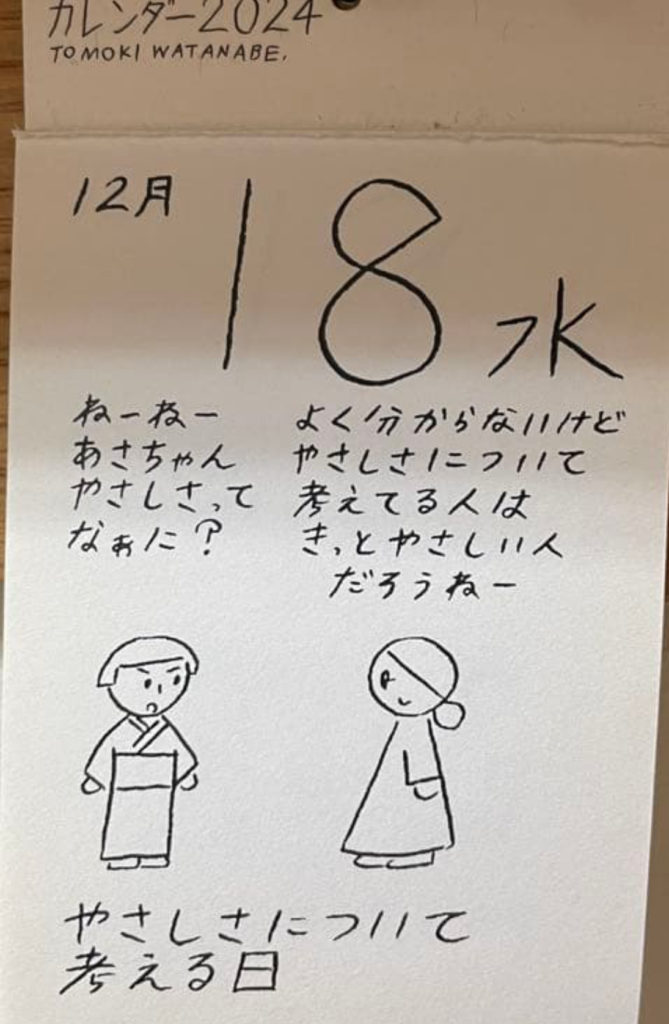 カレンダー2024
TOMOKI WATANABE.
12月
18
水
ねーねー
あさちゃん
やさしさって
なぁに?
よく分からないけど
やさしさについて
考えてる人は
きっとやさしい人
だろうねー
やさしさについて
考える日